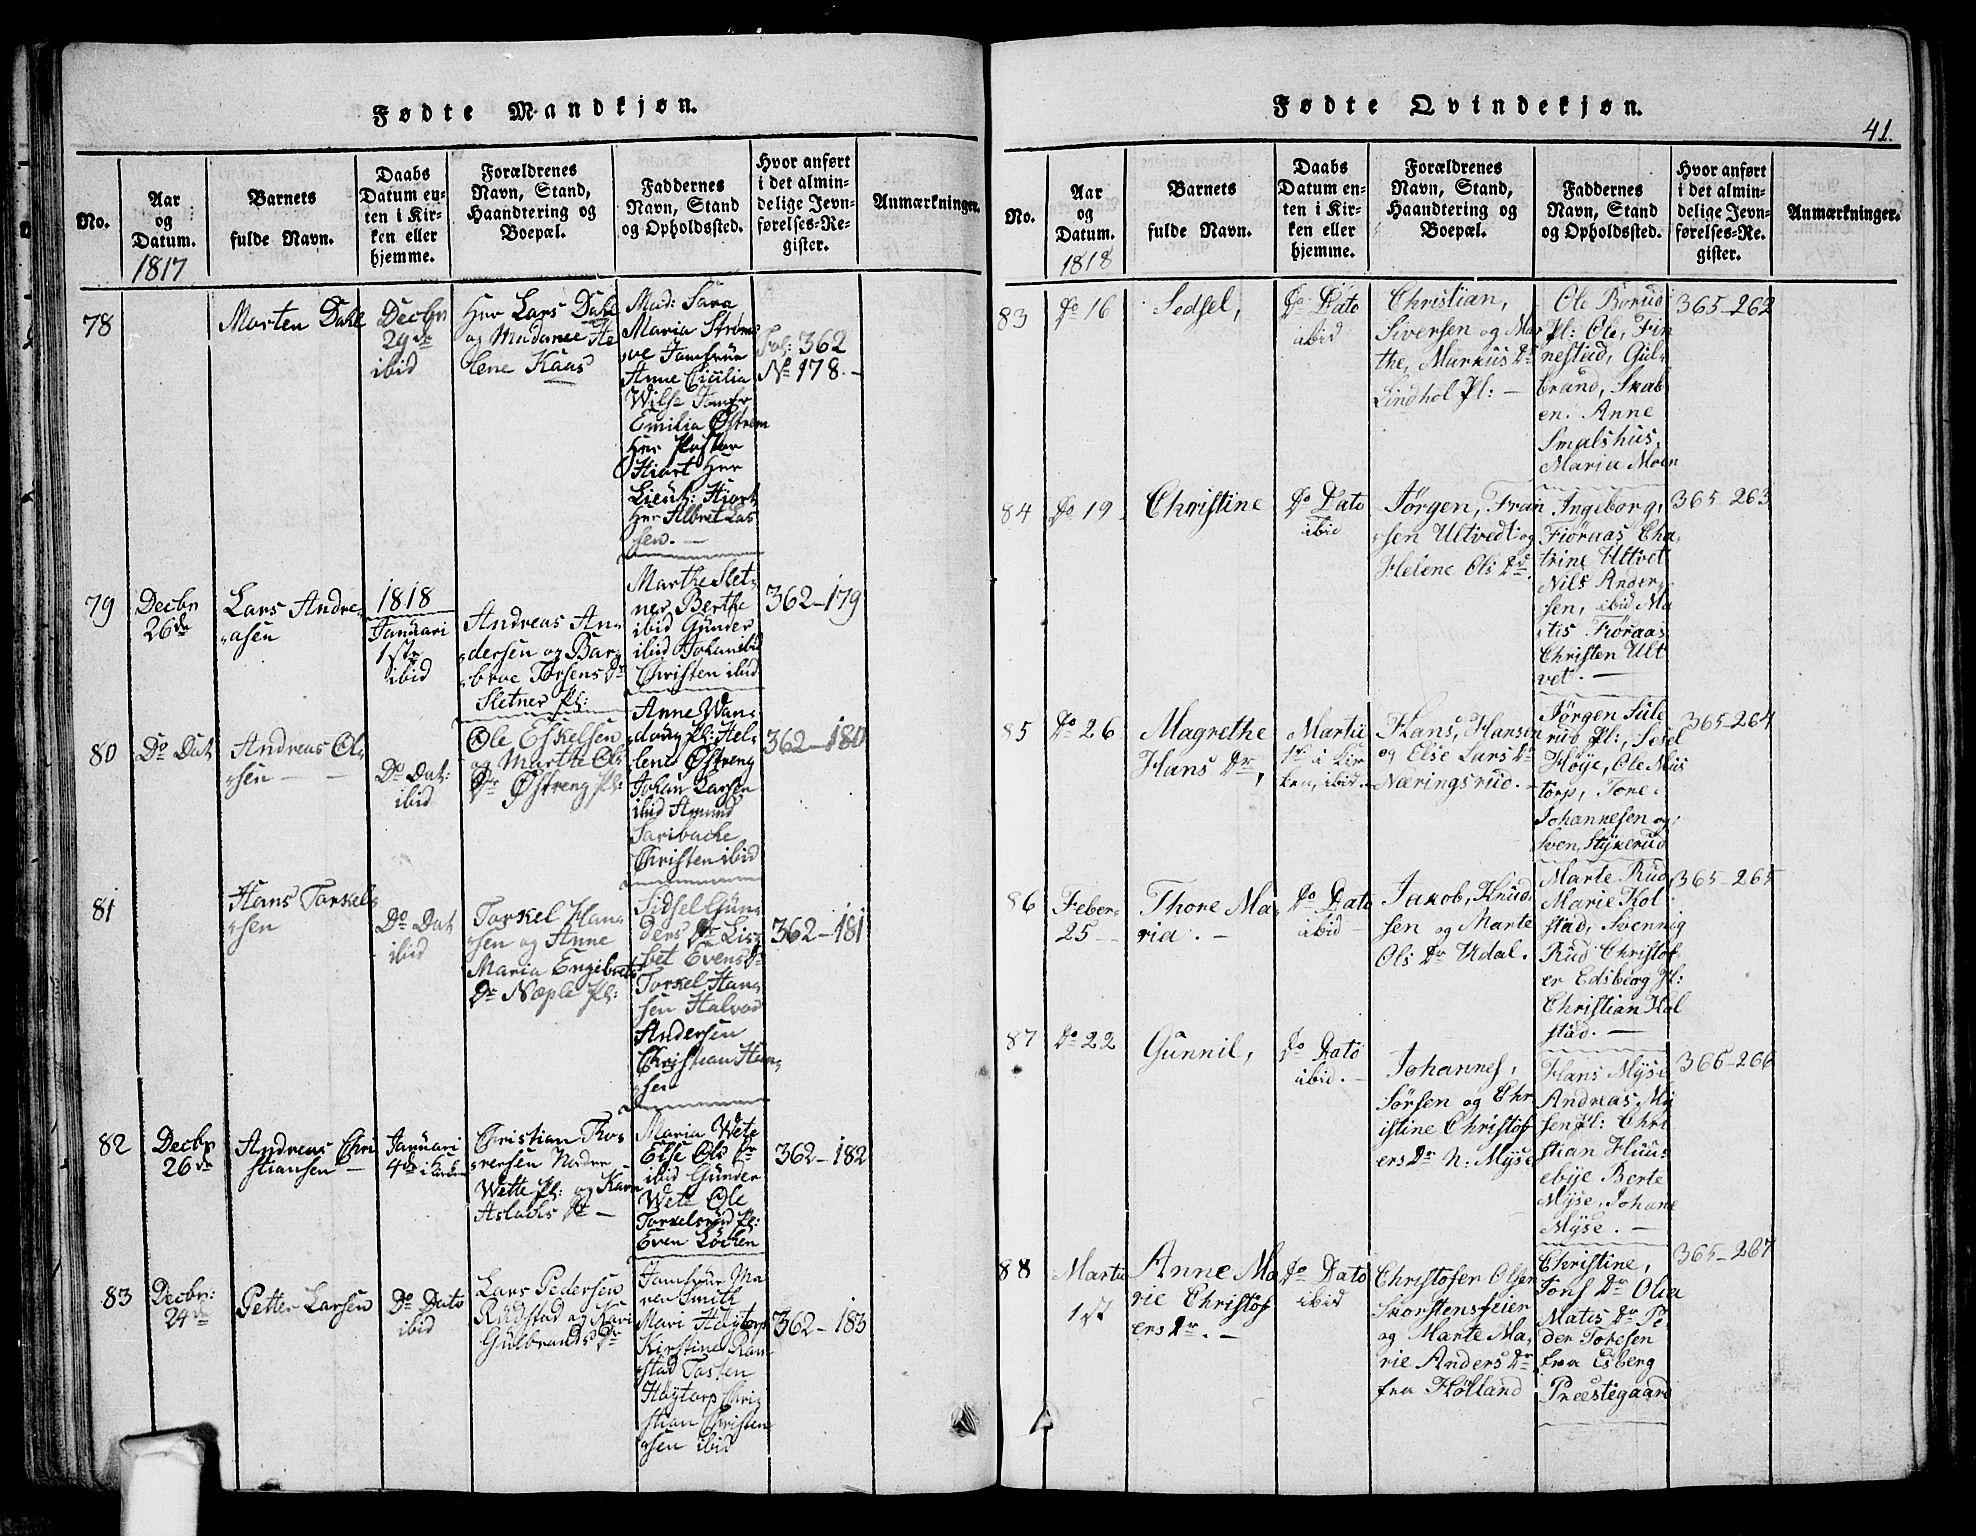 Fødte Mandkjøn.
No.
Aar
og
Datum.
1817
Barnets
fulde Navn.
Daabs
Datum en-
ten i Kir-
ken eller
hjemme.
Forældrenes
Navn, Stand,
Haandtering og
Boepæl.
Faddernes
Navn, Stand
og Opholdssted.
Hvor anført
i det almin-
delige Jevn-
førelses-Re-
gister.
Anmærkninger.
78
Morten Dahl
Decbr
29de
ibid
Herr Lars Dahl
og Madame He
lene Kaas
Mad: Sara
Maria Strøm
Jomfrue
Anne Cicilia
Wilse Jomfr
Emilia Østrem
Herr Pastor
Hiort Herr
Lieut: Hiort
Herr Albret Las
sen. —
Fol: 362
No 178. –
79
Decbr
26de
Lars Andre-
asen
1818
Januari
1ste
ibid
Andreas An-
dersen og Bar-
broe Torsens Dr
Sletner Pl:
Marthe Slet-
ner, Berthe
ibid Gunder
ibid Johan ibid
Christen ibid
362–179
80
Do Dat
Andreas Ol-
sen — —
Do Dat:
ibid
Ole Eskelsen
og Marthe Ols
Dr Østreng Pl:
Anne Wan-
dvug Pl: Hel-
lene Østreng
Johan Larsen
ibid Amund
Saribache
Christen ibid
362–180
81
Hans Torkel-
sen
Do Dat
ibid
Torkel Han-
sen og Anne
Maria Engebrets
Dr Næple Pl:
Sidsel Gun-
ders Dr Lis-
bet Evens Dr
Torkel Han-
sen Halvor
Andersen
Christian Han-
sen
362–181
82
Decbr
26de
Andreas Chri
stiansen —
Januari
4de i Kirken
Christian Thor-
versen Nodre
Wette Pl: og Karn
Aslachs Dr —
Maria Wete
Else Ols Dr
ibid Gunder
Wete Ole
Torkelsrud Pl:
Even Löcken
362–182
83
Decbr:
24de
Petter Larsen
Do Dato
ibid
Lars Pedersen
Rudstad og Kari
Gulbrands Dr
Jomfrue Ma
ren Smith
Mari Høytorp
Kirstine Ram
stad Tosten
Høytorp Chri-
stian Christen
sen ibid
362–183
Fødte Qvindekjøn.
41.
No.
Aar
og
Datum.
1818
Barnets
fulde Navn.
Daabs
Datum en-
ten i Kir-
ken eller
hjemme.
Forældrenes
Navn, Stand,
Haandtering og
Boepæl.
Faddernes
Navn, Stand
og Opholdssted.
Hvor anført
i det almin-
delige Jevn-
førelses-Re-
gister.
Anmærkninger.
83
Do 16
Sedsel,
Do Dato
ibid
Christian,
Siversen og Mar
the, Markus Dr
Lindhol Pl: —
Ole Borud
Pl: Ole, Fin
nestad, Gul-
brand, Skab
en. Anne
Smalshus,
Maria Moen
365–262
84
Do 19
Christine
Do Dato
ibid
Jørgen, Fran
sen Ultvedt og
Helene Ols Dr
Ingeborg,
Fiøraas Cha-
trine Ultvet
Nils Ander-
sen, ibid Ma
tis Fiøraas
Christen Ult
vet. —
365–263
85
Do 26
Magrethe
Hans Dr,
Martii
1st i Kir
ken, ibid. –
Hans, Hansen
og Else Lars Dr
Næringsrud. –
Jørgen Sule
rud Pl:, Sesel
Høije, Ole Mis
torp, Tore
Johannesen og
Sven, Stykerud
365–264
86
Feber-
25 –
Thore Ma-
ria. –
Do Dato
ibid –
Jakob, Knud
sen og Marte
Ols Dr Udal.
Marte Rud
Marie Kol
stad, Svennig
Rud Christof
er Edsberg Pl:
Christian Kol
stad. —
365–265
87
Do 22
Gunnil,
Do Dato
ibid. –
Johannes,
Sörsen og Chr
istine Christof
ers Dr N: Mÿse
Hans Mÿse
Andreas, Mÿ
sen Pl: Chri
stian Huus
ebÿe Berte
Mÿse, Johane
Mÿse. —
366–266
88
Martii
1st
Anne Ma
rie Christof
ers Dr. –
Do Dato
ibid
Christofer Olsen
Skorstensfeier
og Marte Ma-
rie Anders Dr
fra Hølland
Christine,
Jons Dr Olea
Matis Dr Pe
der Toresen
fra Esberg
Præstegaard
365–267